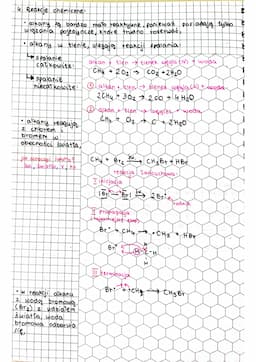 4. Reakcje chemiczne:
• alkany są bardzo mało reaktywne, ponieważ posiadają tylko
wiązania pojedyncze, które trudno rozerwać.
• alkany w tlenie ulegają reakcji spalania:
↳ spalanie
całkowite:
alkan + tlen → tlenek węgla (IV) + woda
CH4 + 2O2 → CO2 + 2H2O
↳ spalanie
niecałkowite:
① alkan + tlen → tlenek węgla (II) + woda
2CH4 + 3O2 → 2CO + 4H2O
② alkan + tlen → węgiel + woda
CH4 + O2 → C + 2H2O
• alkany reagują
z chlorem i
bromem w
obecności światła.
CH4 + Br2 → CH3Br + HBr
reakcja łańcuchowa
I inicjacja
Br–Br → 2Br•
rodnik
II propagacja
Br• + CH4 → •CH3 + HBr
Br• H–C–H
H
H
III terminacja
Br• + •CH3 → CH3Br
• w reakcji alkanu
z wodą bromową
(Br2) z udziałem
światła, woda
bromowa odbarwia
się.